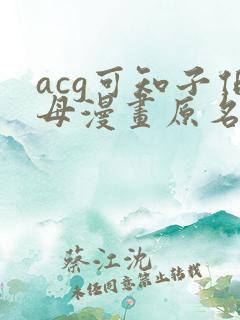 acg可知子伯
母漫畫原名
蔡江沈
未经同意禁止转载